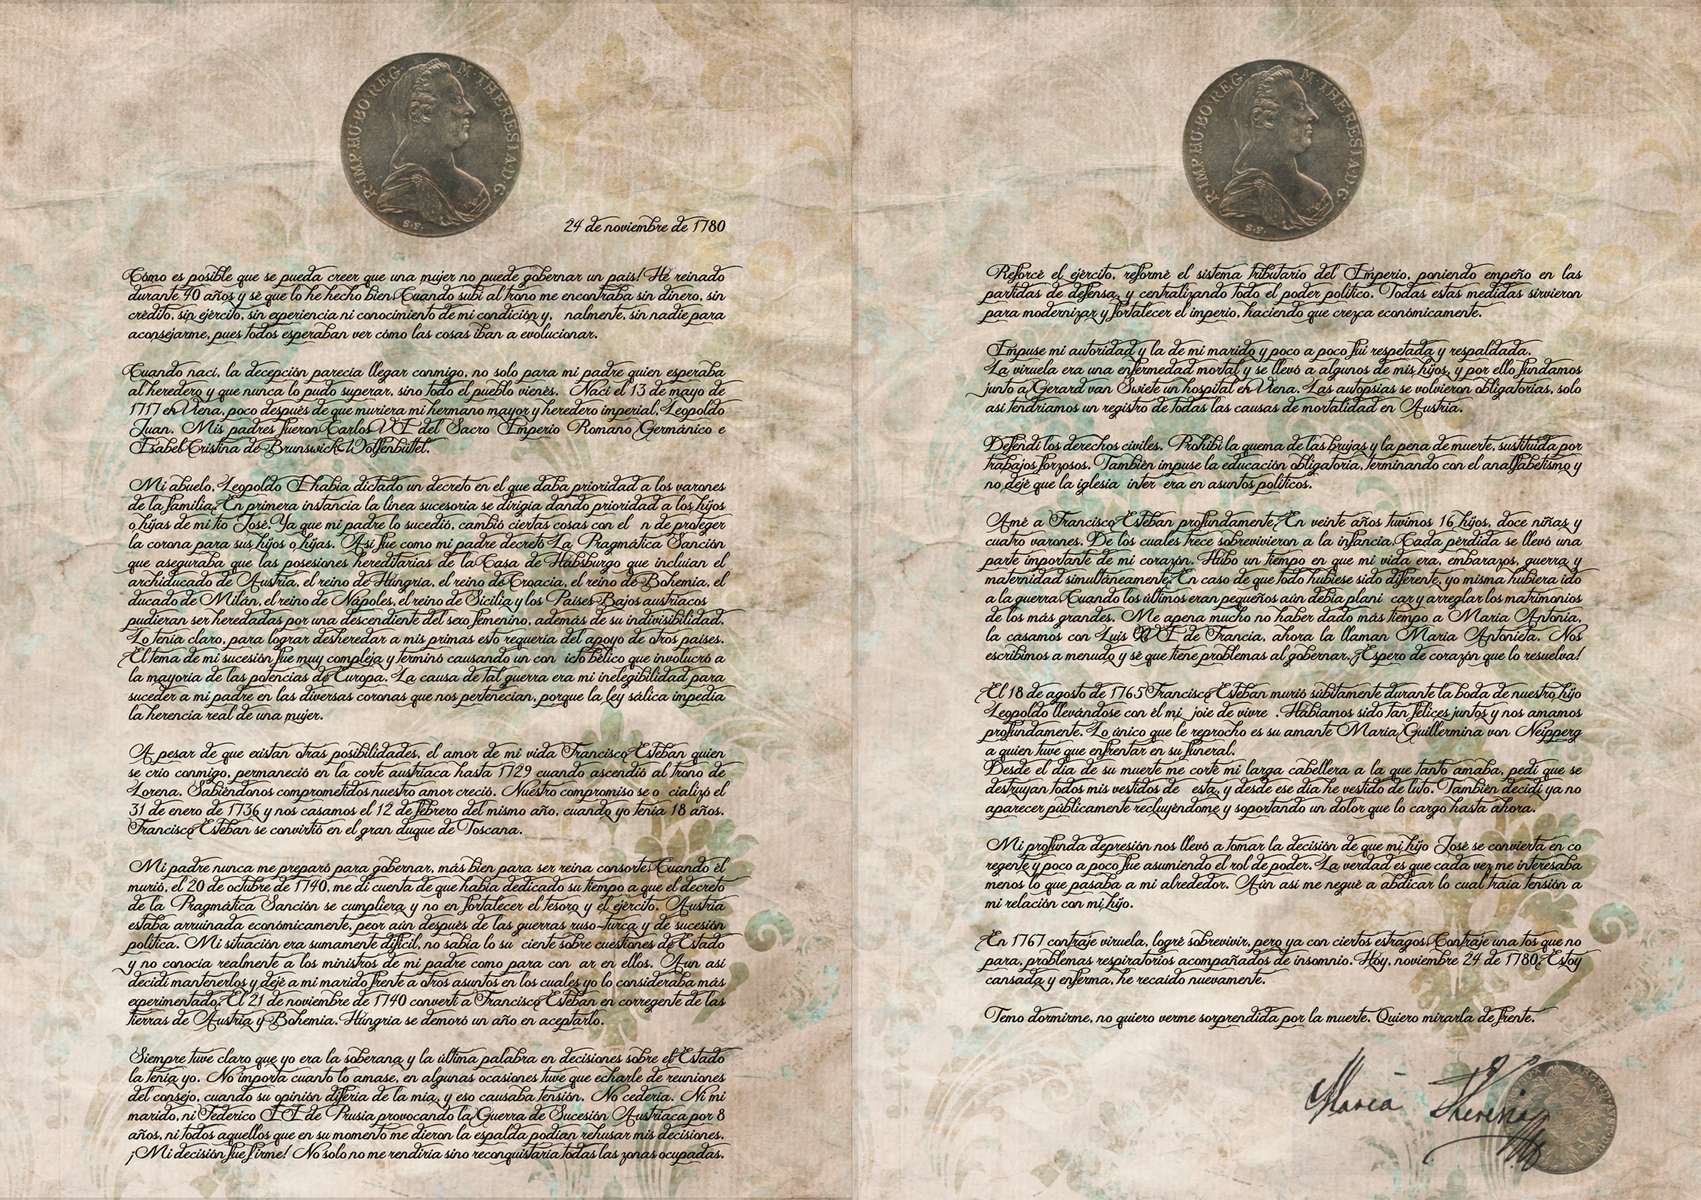 R·IMP·HU·BO·REG· M·THERESIA·D·G·
S·F·
24 de noviembre de 1780
Cómo es posible que se pueda creer que una mujer no puede gobernar un país! He reinado
durante 40 años y sé que lo he hecho bien. Cuando subí al trono me encontraba sin dinero, sin
crédito, sin ejército, sin experiencia ni conocimiento de mi condición y, nalmente, sin nadie para
aconsejarme, pues todos esperaban ver cómo las cosas iban a evolucionar.
Cuando nací, la decepción parecía llegar conmigo, no solo para mi padre quien esperaba
al heredero y que nunca lo pudo superar, sino todo el pueblo vienés. Nací el 13 de mayo de
1717 en Viena, poco después de que muriera mi hermano mayor y heredero imperial, Leopoldo
Juan. Mis padres fueron Carlos VI del Sacro Imperio Romano Germánico e
Isabel Cristina de Brunswick-Wolfenbüttel.
Mi abuelo, Leopoldo I había dictado un decreto en el que daba prioridad a los varones
de la familia. En primera instancia la línea sucesoria se dirigía dando prioridad a los hijos
o hijas de mi tío José. Ya que mi padre lo sucedió, cambió ciertas cosas con el n de proteger
la corona para sus hijos o hijas. Así fue como mi padre decretó La Pragmática Sanción
que aseguraba que las posesiones hereditarias de la Casa de Habsburgo que incluían el
archiducado de Austria, el reino de Hungría, el reino de Croacia, el reino de Bohemia, el
ducado de Milán, el reino de Nápoles, el reino de Sicilia y los Países Bajos austríacos
pudieran ser heredadas por una descendiente del sexo femenino, además de su indivisibilidad.
Lo tenía claro, para lograr desheredar a mis primas esto requería del apoyo de otros países.
El tema de mi sucesión fue muy compleja y terminó causando un con icto bélico que involucró a
la mayoría de las potencias de Europa. La causa de tal guerra era mi inelegibilidad para
suceder a mi padre en las diversas coronas que nos pertenecían, porque la ley sálica impedía
la herencia real de una mujer.
A pesar de que existan otras posibilidades, el amor de mi vida Francisco Esteban quien
se crio conmigo, permaneció en la corte austríaca hasta 1729 cuando ascendió al trono de
Lorena. Sabiéndonos comprometidos nuestro amor creció. Nuestro compromiso se o cializó el
31 de enero de 1736 y nos casamos el 12 de febrero del mismo año, cuando yo tenía 18 años.
Francisco Esteban se convirtió en el gran duque de Toscana.
Mi padre nunca me preparó para gobernar, más bien para ser reina consorte. Cuando él
murió, el 20 de octubre de 1740, me di cuenta de que había dedicado su tiempo a que el decreto
de la Pragmática Sanción se cumpliera y no en fortalecer el tesoro y el ejército. Austria
estaba arruinada económicamente, peor aún después de las guerras ruso-turca y de sucesión
política. Mi situación era sumamente difícil, no sabía lo su ciente sobre cuestiones de Estado
y no conocía realmente a los ministros de mi padre como para con ar en ellos. Aun así
decidí mantenerlos y dejé a mi marido frente a otros asuntos en los cuales yo lo consideraba más
experimentado. El 21 de noviembre de 1740 convertí a Francisco Esteban en corregente de las
tierras de Austria y Bohemia. Hungría se demoró un año en aceptarlo.
Siempre tuve claro que yo era la soberana y la última palabra en decisiones sobre el Estado
la tenía yo. No importa cuanto lo amase, en algunas ocasiones tuve que echarle de reuniones
del consejo, cuando su opinión difería de la mía, y eso causaba tensión. No cedería. Ni mi
marido, ni Federico II de Prusia provocando la Guerra de Sucesión Austríaca por 8
años, ni todos aquellos que en su momento me dieron la espalda podían rehusar mis decisiones.
¡Mi decisión fue firme! No solo no me rendiría sino reconquistaría todas las zonas ocupadas.
R·IMP·HU·BO·REG· M·THERESIA·D·G·
S·F·
Reforcé el ejército, reformé el sistema tributario del Imperio, poniendo empeño en las
partidas de defensa, y centralizando todo el poder político. Todas estas medidas sirvieron
para modernizar y fortalecer el imperio, haciendo que crezca económicamente.
Impuse mi autoridad y la de mi marido y poco a poco fui respetada y respaldada.
La viruela era una enfermedad mortal y se llevó a algunos de mis hijos, y por ello fundamos
junto a Gerard van Swiete un hospital en Viena. Las autopsias se volvieron obligatorias, solo
así tendríamos un registro de todas las causas de mortalidad en Austria.
Defendí los derechos civiles. Prohibí la quema de las brujas y la pena de muerte, sustituida por
trabajos forzosos. También impuse la educación obligatoria, terminando con el analfabetismo y
no dejé que la iglesia inter era en asuntos políticos.
Amé a Francisco Esteban profundamente. En veinte años tuvimos 16 hijos, doce niñas y
cuatro varones. De los cuales trece sobrevivieron a la infancia. Cada pérdida se llevó una
parte importante de mi corazón. Hubo un tiempo en que mi vida era, embarazos, guerra y
maternidad simultáneamente. En caso de que todo hubiese sido diferente, yo misma hubiera ido
a la guerra. Cuando los últimos eran pequeños aún debía plani car y arreglar los matrimonios
de los más grandes. Me apena mucho no haber dado más tiempo a María Antonia,
la casamos con Luis XVI de Francia, ahora la llaman María Antonieta. Nos
escribimos a menudo y sé que tiene problemas al gobernar. ¡Espero de corazón que lo resuelva!
El 18 de agosto de 1765 Francisco Esteban murió súbitamente durante la boda de nuestro hijo
Leopoldo llevándose con él mi joie de vivre . Habíamos sido tan felices juntos y nos amamos
profundamente. Lo único que le reprocho es su amante María Guillermina von Neipperg
a quien tuve que enfrentar en su funeral.
Desde el día de su muerte me corté mi larga cabellera a la que tanto amaba, pedí que se
destruyan todos mis vestidos de esta, y desde ese día he vestido de luto. También decidí ya no
aparecer públicamente recluyéndome y soportando un dolor que lo cargo hasta ahora.
Mi profunda depresión nos llevó a tomar la decisión de que mi hijo José se convierta en co
regente y poco a poco fue asumiendo el rol de poder. La verdad es que cada vez me interesaba
menos lo que pasaba a mi alrededor. Aún así me negué a abdicar lo cual traía tensión a
mi relación con mi hijo.
En 1767 contraje viruela, logré sobrevivir, pero ya con ciertos estragos. Contraje una tos que no
para, problemas respiratorios acompañados de insomnio. Hoy, noviembre 24 de 1780. Estoy
cansada y enferma, he recaído nuevamente.
Temo dormirme, no quiero verme sorprendida por la muerte. Quiero mirarla de frente.
Maria Theresia